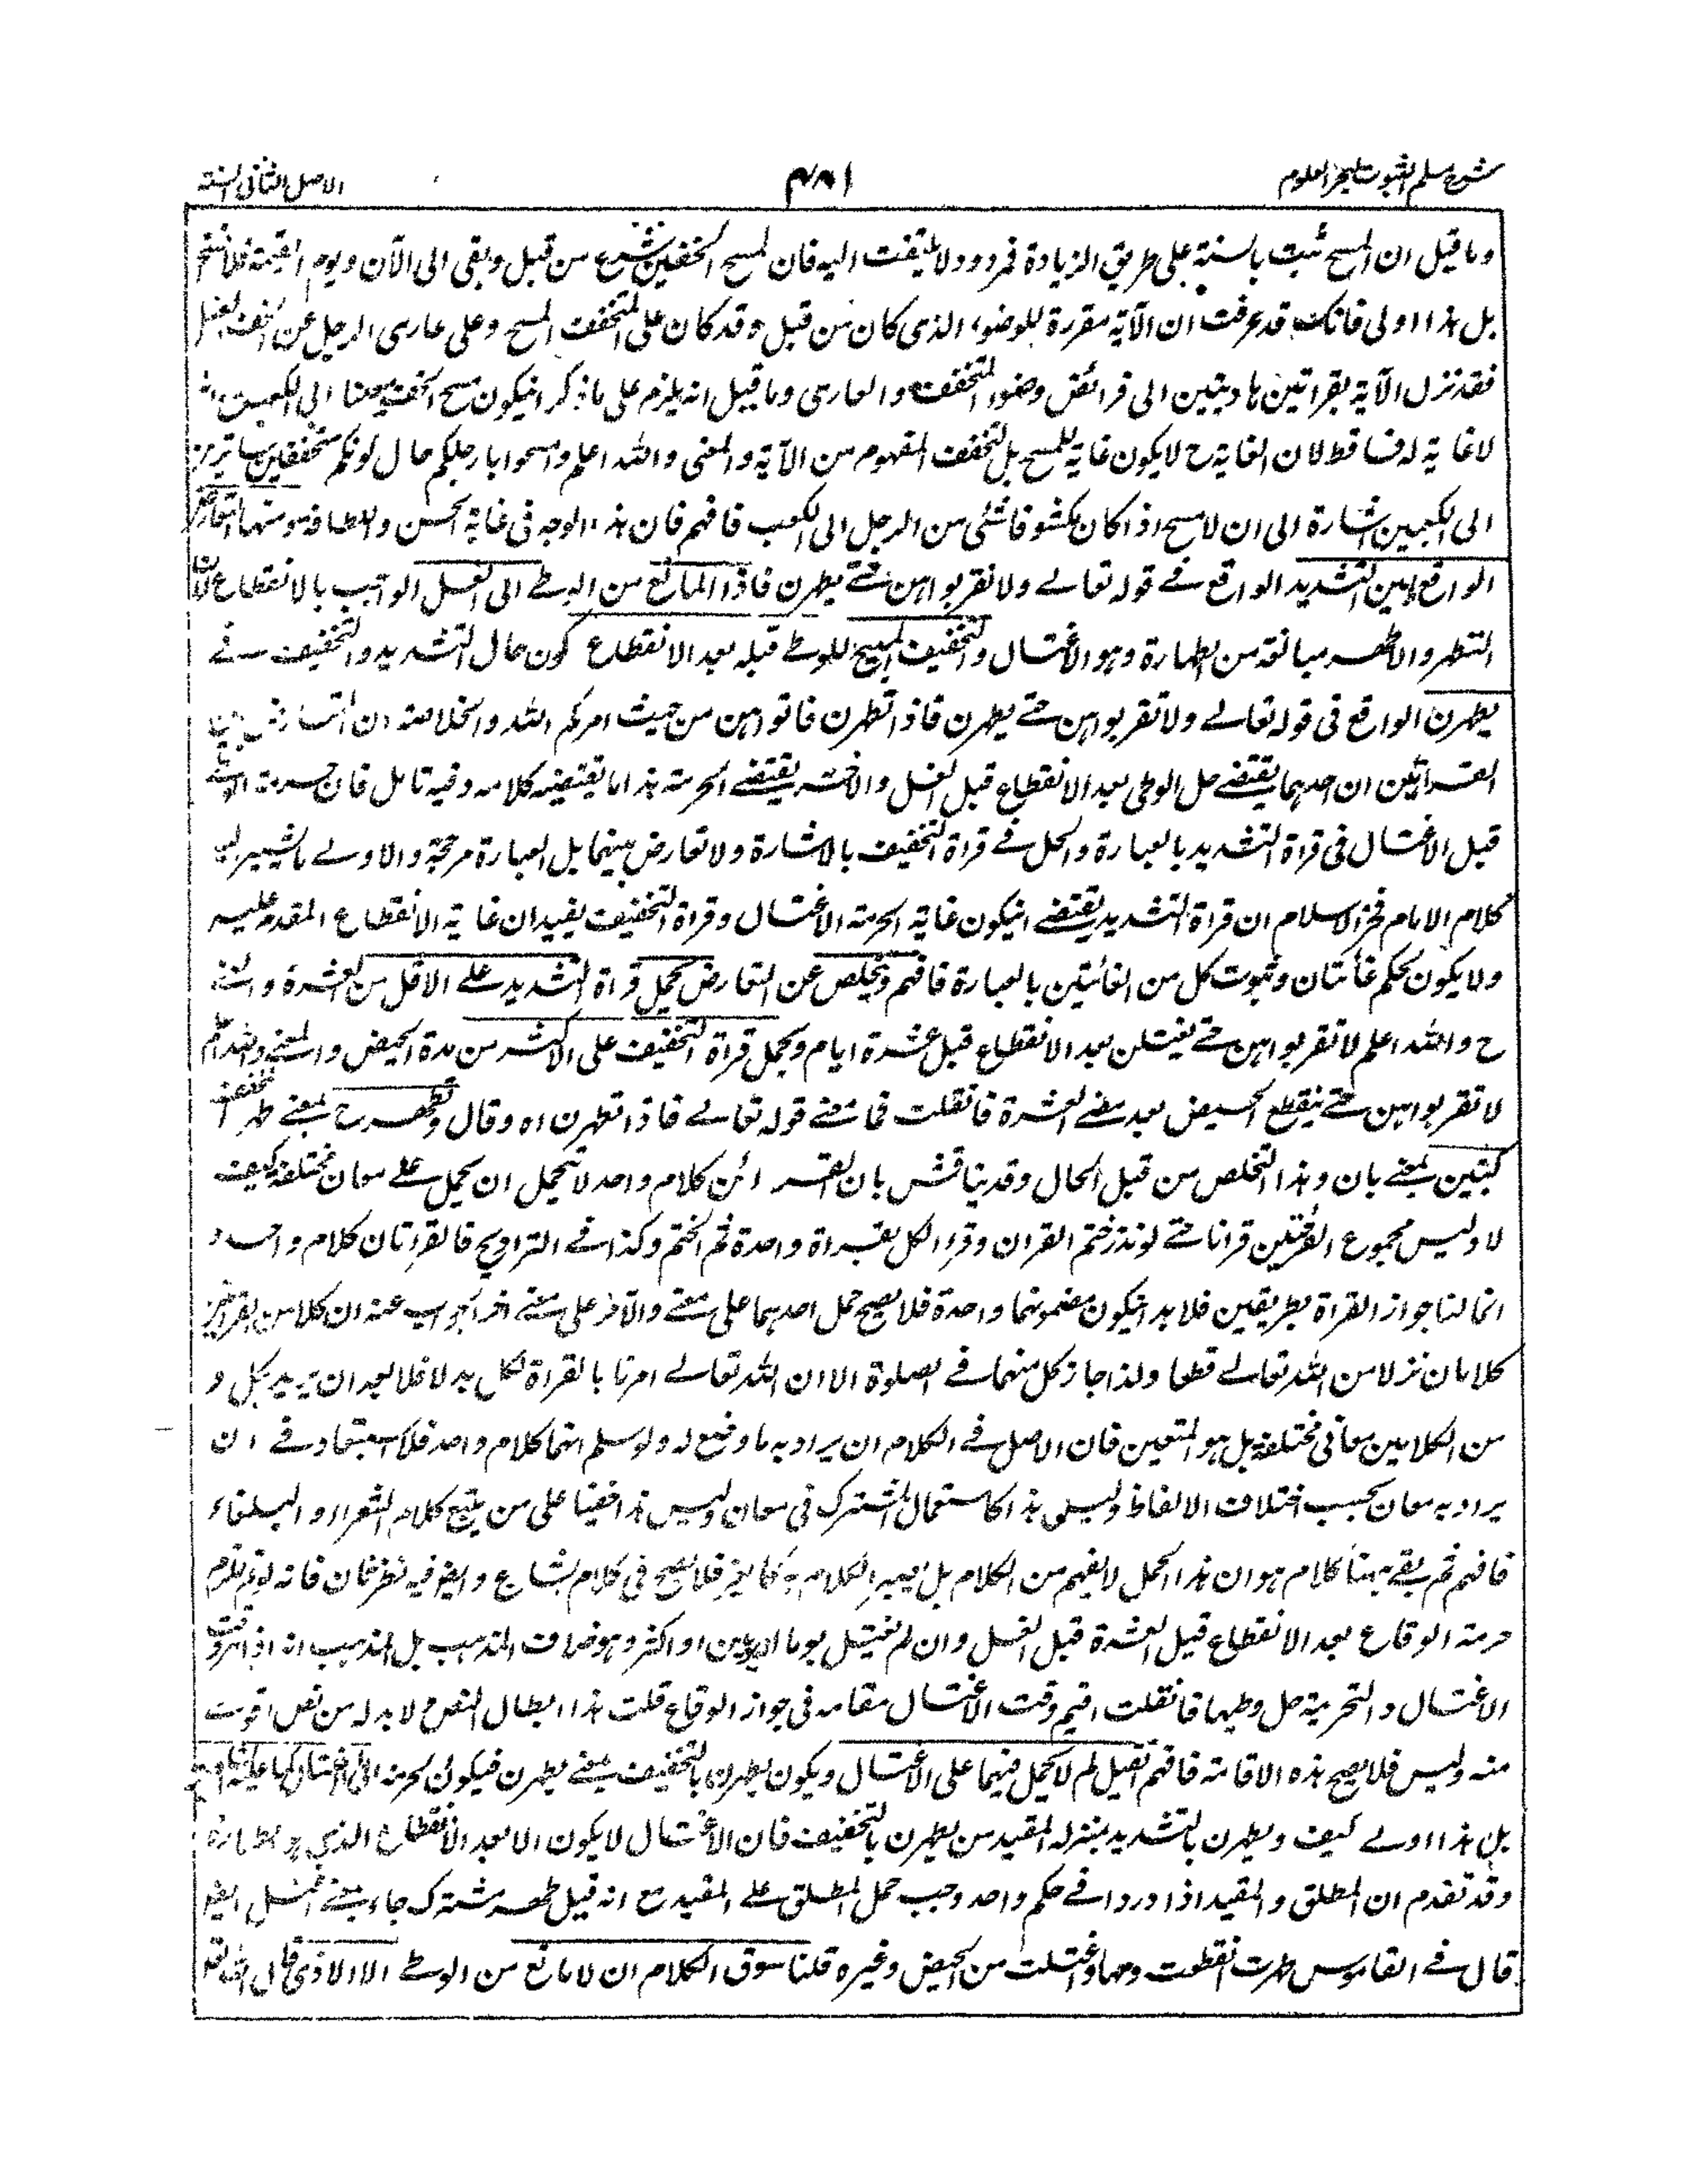 شرح مسلم الثبوت لبحر العلوم
۴۸۱
الاصل الثانی السنة
وما قيل ان المسح ثبت بالسنة على طريق الزيادة فمردود لا يلتفت اليه فان مسح الخفين شرع من قبل وبقى الى الآن ويوم القيمة فلا نسخ
بل هذا اولى فانك قد عرفت ان الآية مقررة للوضوء الذى كان من قبل وقد كان على المتخفف المسح وعلى عارى الرجل عن الخف الغسل
فقد نزل الآية بقراتين هاديتين الى فرائض وضوء المتخفف والعارى وما قيل انه يلزم على ما ذكر انيكون مسح الخف مغيا الى الكعبين
لا غاية له فساقط لان الغاية ح لا يكون غاية للمسح بل للتخفف المفهوم من الآية والمعنى والله اعلم وامسحوا بارجلكم حال كونكم متخففين ساترين
الى الكعبين اشارة الى ان لا مسح اذا كان مكشوفا شئ من الرجل الى الكعب فافهم فان هذا الوجه فى غاية الحسن واللطافة ومنها التعارض
الواقع بين التشديد الواقع فے قوله تعالے ولا تقربوهن حتے يطهرن فاذا المانع من الوطے الى الغسل الواجب بالانقطاع لان
التطهر والاطهر مبالغة من الطهارة وهو الاغتسال والتخفيف المبيح للوطے قبله بعد الانقطاع كون حال التشديد والتخفيف فے
يطهرن الواقع فى قوله تعالے ولا تقربوهن حتے يطهرن فاذا تطهرن فاتوهن من حيث امركم الله والخلاصة ان التعارض بين
القرائتين ان احدهما يقتضے حل الوطى بعد الانقطاع قبل الغسل والاخر يقتضے الحرمة هذا ما يقتضيه كلامه وفيه تامل فان حرمة الوطے
قبل الاغتسال فى قراة التشديد بالعبارة والحل فے قراة التخفيف بالاشارة ولا تعارض بينهما بل العبارة مرجحة والاولے ما يشير اليه
كلام الامام فخر الاسلام ان قراة التشديد يقتضے انيكون غاية الحرمة الاغتسال وقراة التخفيف يفيد ان غاية الانقطاع المقدم عليه
ولا يكون لحكم غايتان وثبوت كل من الغائتين بالعبارة فافهم وتخلص عن التعارض بحمل قراة التشديد علے الاقل من العشرة والمعنے
ح والله اعلم لا تقربوهن حتے يغتسلن بعد الانقطاع قبل عشرة ايام ويحمل قراة التخفيف على الاكثر من مدة الحيض والمعنے والله اعلم
لا تقربوهن حتے ينقطع الحيض بعد مضے العشرة فانقلت فما معنے قوله تعالے فاذا تطهرن اه وقال وتطهر ح بمعنے طهر المخفف
كتبين بمعنے بان وهذا التخلص من قبل الحال وقد يناقش بان القرائن كلام واحد لا يتحمل ان يحمل علے معان مختلفة كيف
لا وليس مجموع القرئتين قرانا حتے لو نذر ختم القران وقرء الكل بقراة واحدة تم الختم وكذا فے التراويح فالقراتان كلام واحد
انما لنا جواز القراة بطريقين فلا بد انيكون مضمونهما واحدة فلا يصح حمل احدهما على معنے والآخر على معنے اخر الجواب عنه ان كلا من القرائتين
كلامان نزلا من الله تعالے قطعا ولذا جاز كل منهما فے الصلوة الا ان الله تعالے امرنا بالقراة لكل بدلا فلا بعد ان يريد بكل و
من الكلامين معانى مختلفة بل هو المتعين فان الاصل فے الكلام ان يراد به ما وضع له ولو سلم انهما كلام واحد فلا استبعاد فے ان
يراد به معان بحسب اختلاف الالفاظ وليس هذا كاستعمال المشترك فى معان وليس هذا خفيا على من يتتبع كلام الشعراء والبلغاء
فافهم ثم بقے ههنا كلام هو ان هذا الحمل لا يفهم من الكلام بل يصير الكلام به كاللغز فلا يصح فى كلام الشارع وايضا فيه نظر ثان فانه لو تم لزم
حرمة الوقاع بعد الانقطاع قبل العشرة قبل الغسل وان لم تغتسل يوما او يومين او اكثر وهو خلاف المذهب بل المذهب انه اذا مر وقت
الاغتسال والتحريمة حل وطيها فانقلت اقيم وقت الاغتسال مقامه فى جواز الوقاع قلت هذا ابطال النص لا بد له من نص اقوى
منه وليس فلا يصح هذه الاقامة فافهم قيل لم لا يحمل فيهما على الاغتسال ويكون يطهرن بالتخفيف بمعنے يطهرن فيكون الحرمة الى الاغتسال
بل هذا اولے كيف ويطهرن بالتشديد بمنزلة المقيد من يطهرن بالتخفيف فان الاغتسال لا يكون الا بعد الانقطاع الذى هو الطهارة
وقد تقدم ان المطلق والمقيد اذا وردا فے حكم واحد وجب حمل المطلق علے المقيد مع انه قيل طهر مشترك جاء بمعنے اغتسل ايضا
قال فے القاموس طهرت انقطعت دمها واغتسلت من الحيض وغيره قلنا سوق الكلام ان لا مانع من الوطے الا الاذى قال الله تعالى